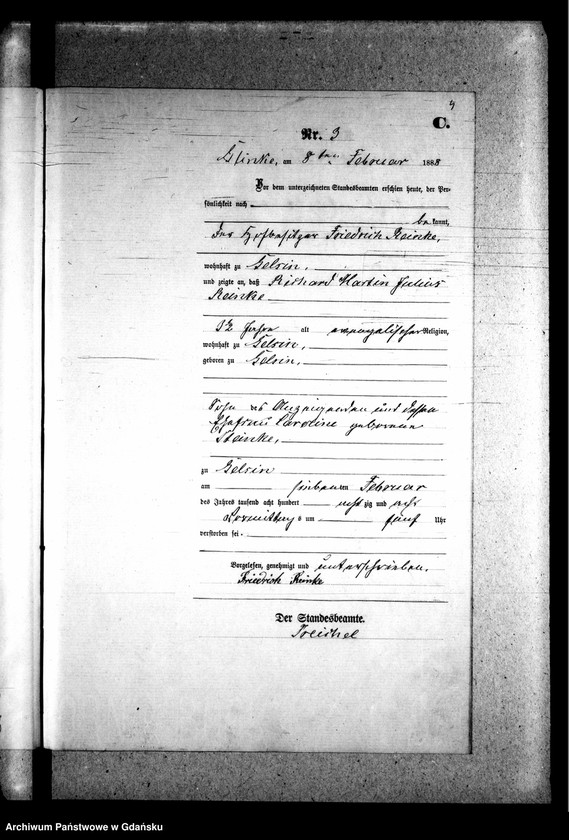 4
C.
Nr. 3
Glinke, am 8ten Februar 1888
Vor dem unterzeichneten Standesbeamten erschien heute, der Per-
sönlichkeit nach
be kannt,
der Hofbesitzer Friedrich Reincke,
wohnhaft zu Gelsin,
und zeigte an, daß Richard Martin Julius
Reincke
12 Jahre alt evangelischer Religion,
wohnhaft zu Gelsin,
geboren zu Gelsin,
Sohn des Anzeigenden und dessen
Ehefrau Caroline geborene
Steincke,
zu Gelsin
am siebenten Februar
des Jahres tausend acht hundert acht zig und acht
Vormittags um fünf Uhr
verstorben sei.
Vorgelesen, genehmigt und unterschrieben.
Friedrich Reinke
Der Standesbeamte.
Archiwum Państwowe w Gdańsku